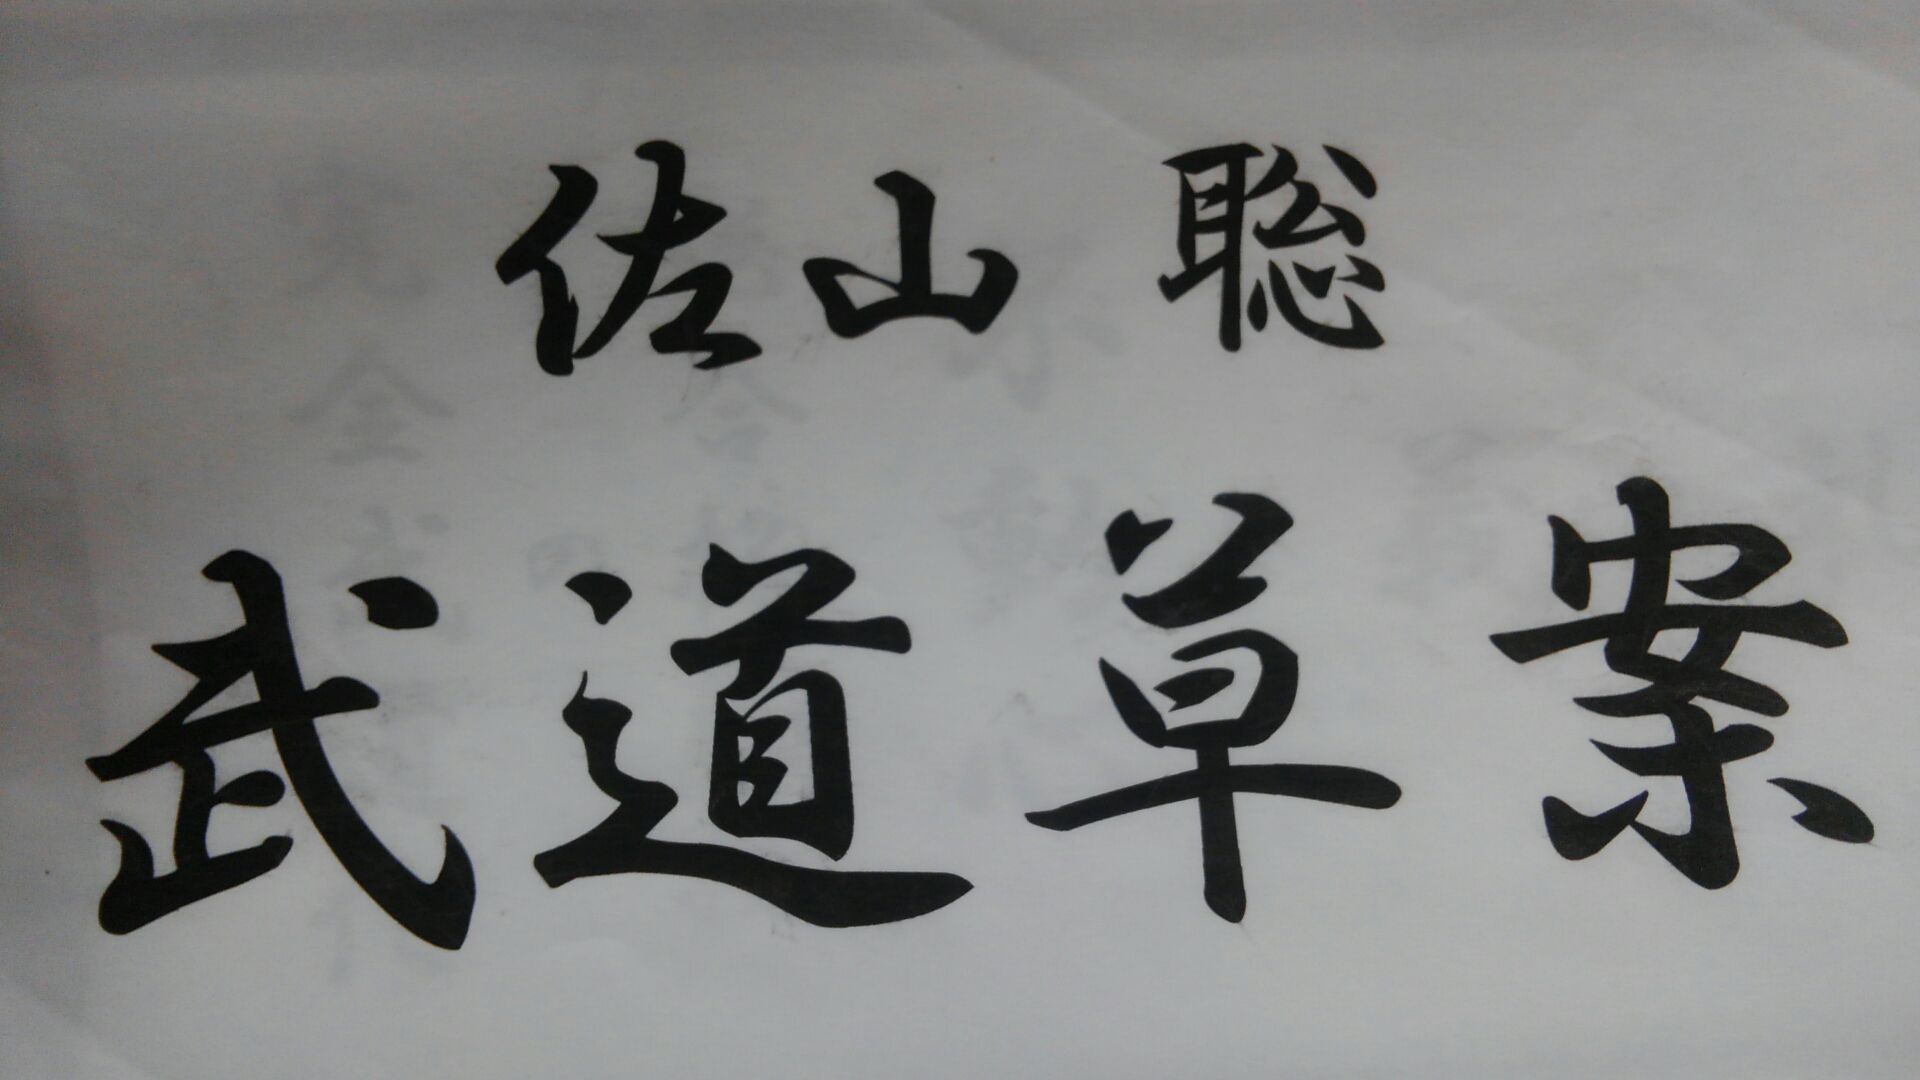 佐山 聡
武道草案